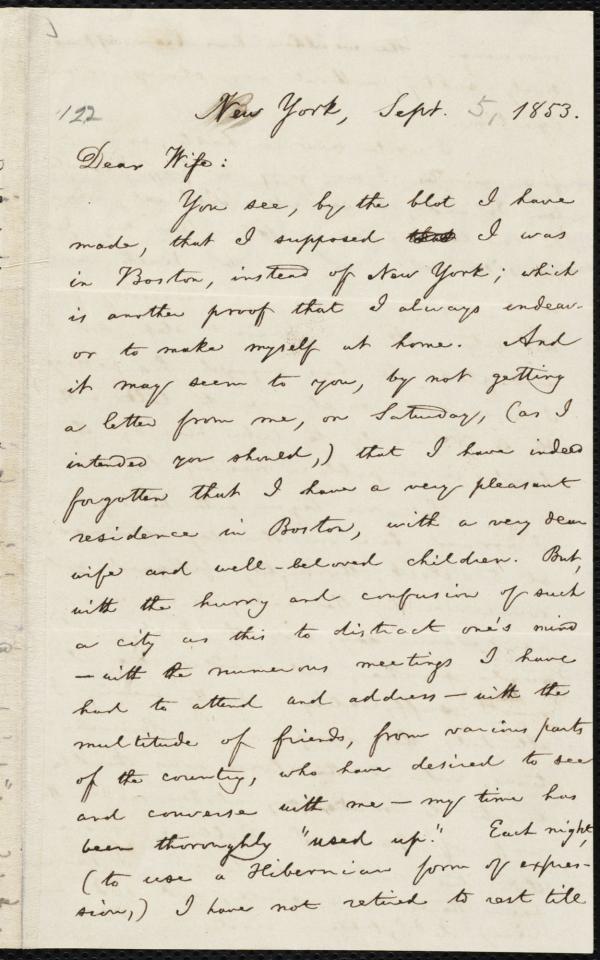 122
New York, Sept. 5, 1853.
Dear Wife:
You see, by the blot I have
made, that I supposed that I was
in Boston, instead of New York; which
is another proof that I always endeav-
or to make myself at home. And
it may seem to you, by not getting
a letter from me, on Saturday, (as I
intended you should,) that I have indeed
forgotten that I have a very pleasant
residence in Boston, with a very dear
wife and well-beloved children. But,
with the hurry and confusion of such
a city as this to distract one's mind
—with the numerous meetings I have
had to attend and address—with the
multitude of friends, from various parts
of the country, who have desired to see
and converse with me—my time has
been thoroughly "used up." Each night,
(to use a Hibernian form of expres-
sion,) I have not retired to rest till